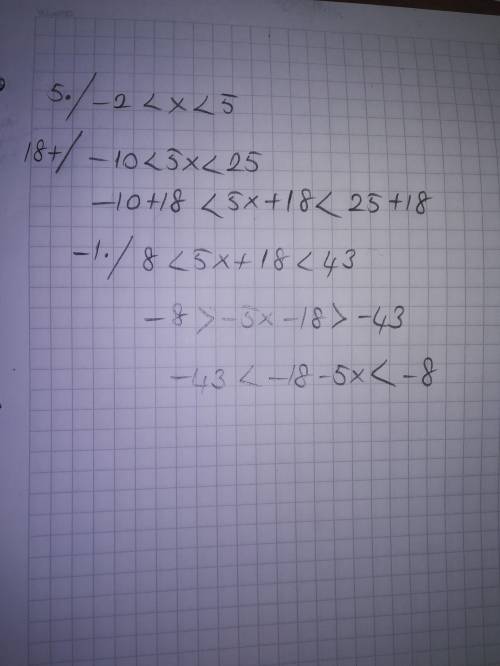 5·/ -2 < x < 5
18+/ -10 < 5x < 25
-10+18 < 5x+18 < 25+18
-1·/ 8 < 5x+18 < 43
-8 > -5x -18 > -43
-43 < -18 -5x < -8